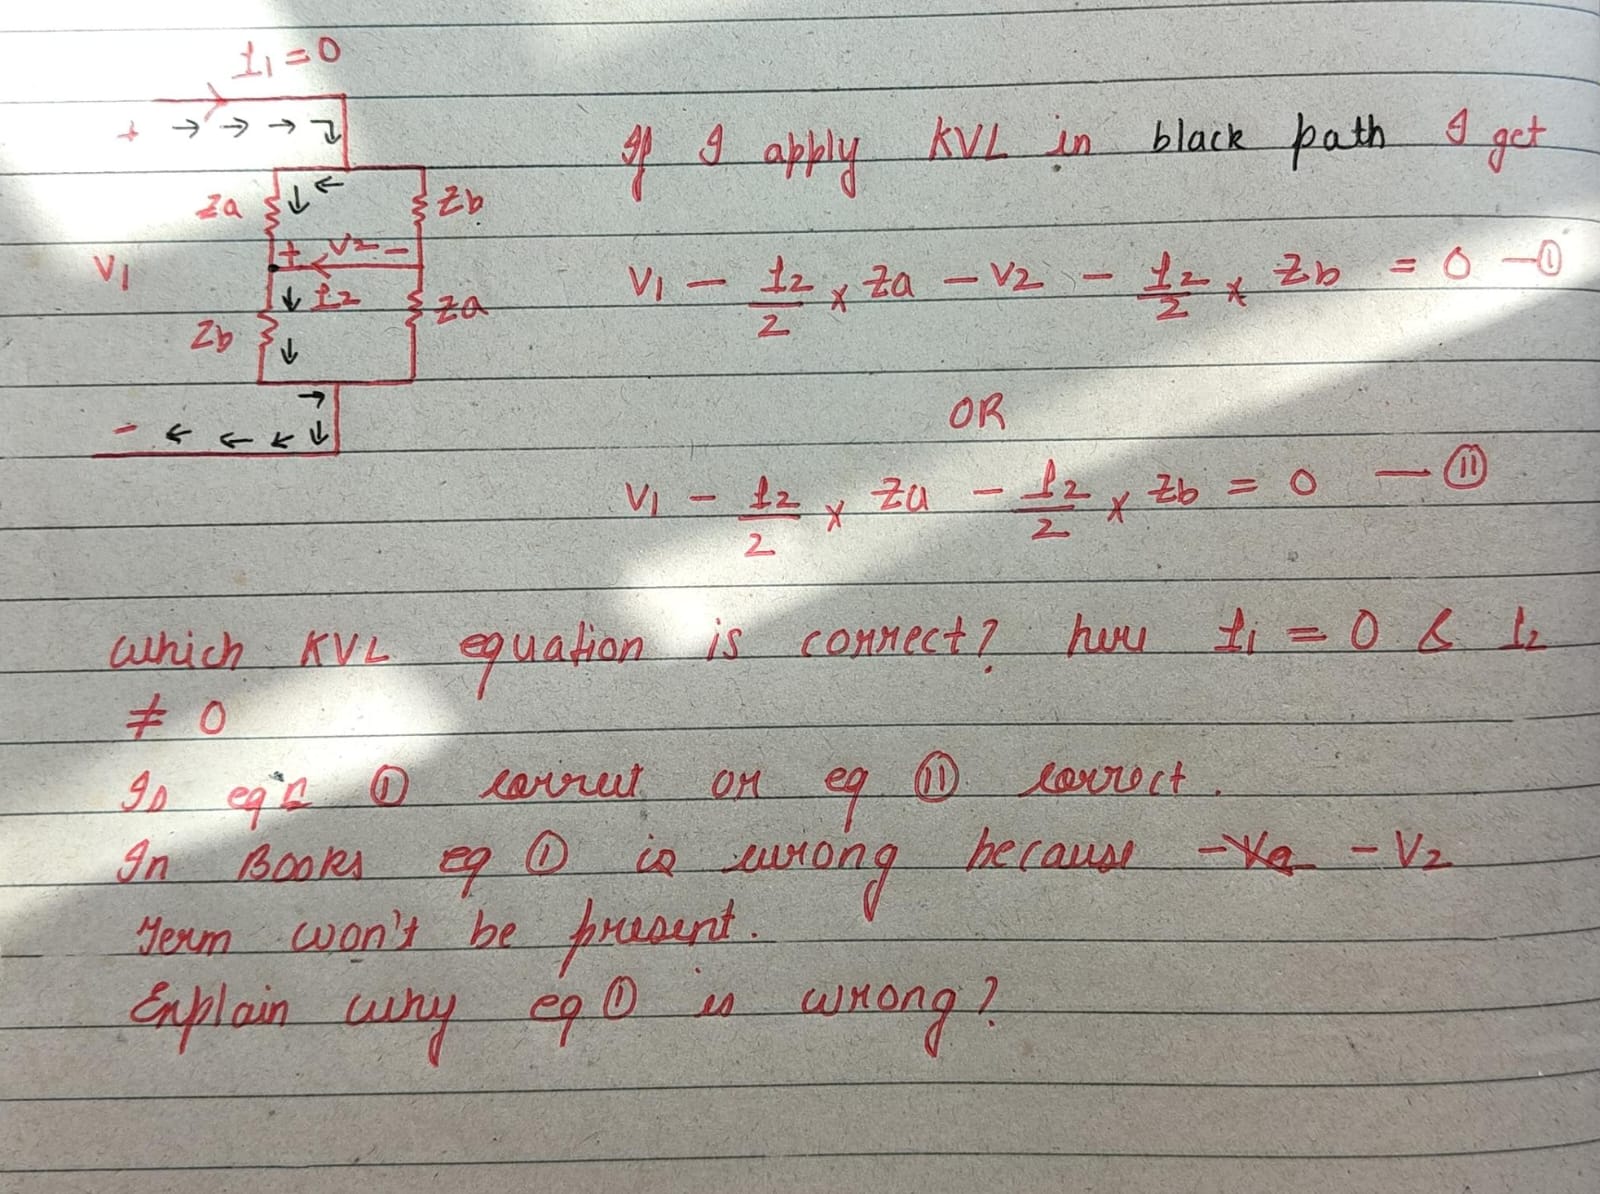 I₁ = 0
+
Za
Zb
+ V2 -
V1
I2
Za
Zb
-
If I apply KVL in black path I get
V1 - I2/2 × Za - V2 - I2/2 × Zb = 0 - ①
OR
V1 - I2/2 × Za - I2/2 × Zb = 0 - ⑪
which KVL equation is correct? here I1 = 0 & I2
≠ 0
Is eqn ① correct or eq ⑪ correct.
In Books eq ① is wrong because - V2
Term won't be present.
Explain why eq ① is wrong?